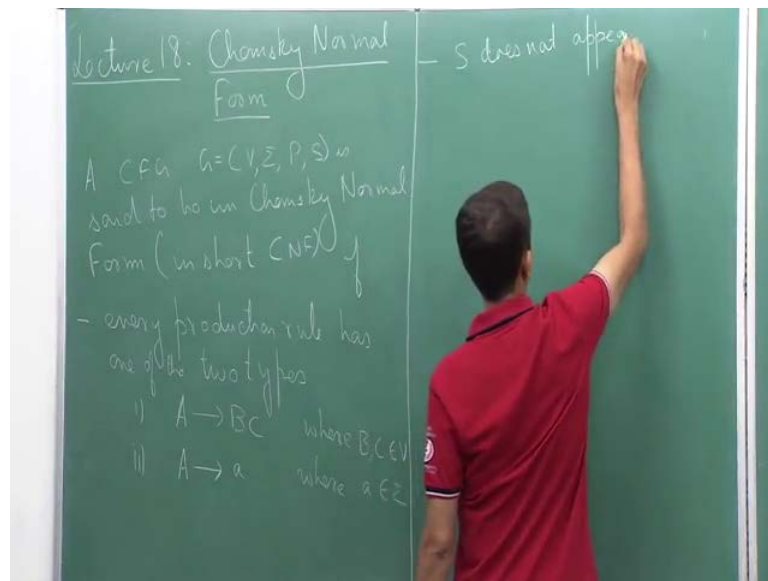 Lecture 18: Chomsky Normal
Form
A CFG G=(V,Σ,P,S) is
said to be in Chomsky Normal
Form (in short CNF) if
- every production rule has
one of the two types
i) A → BC where B,C ∈ V
ii) A → a where a ∈ Σ
- S does not appea